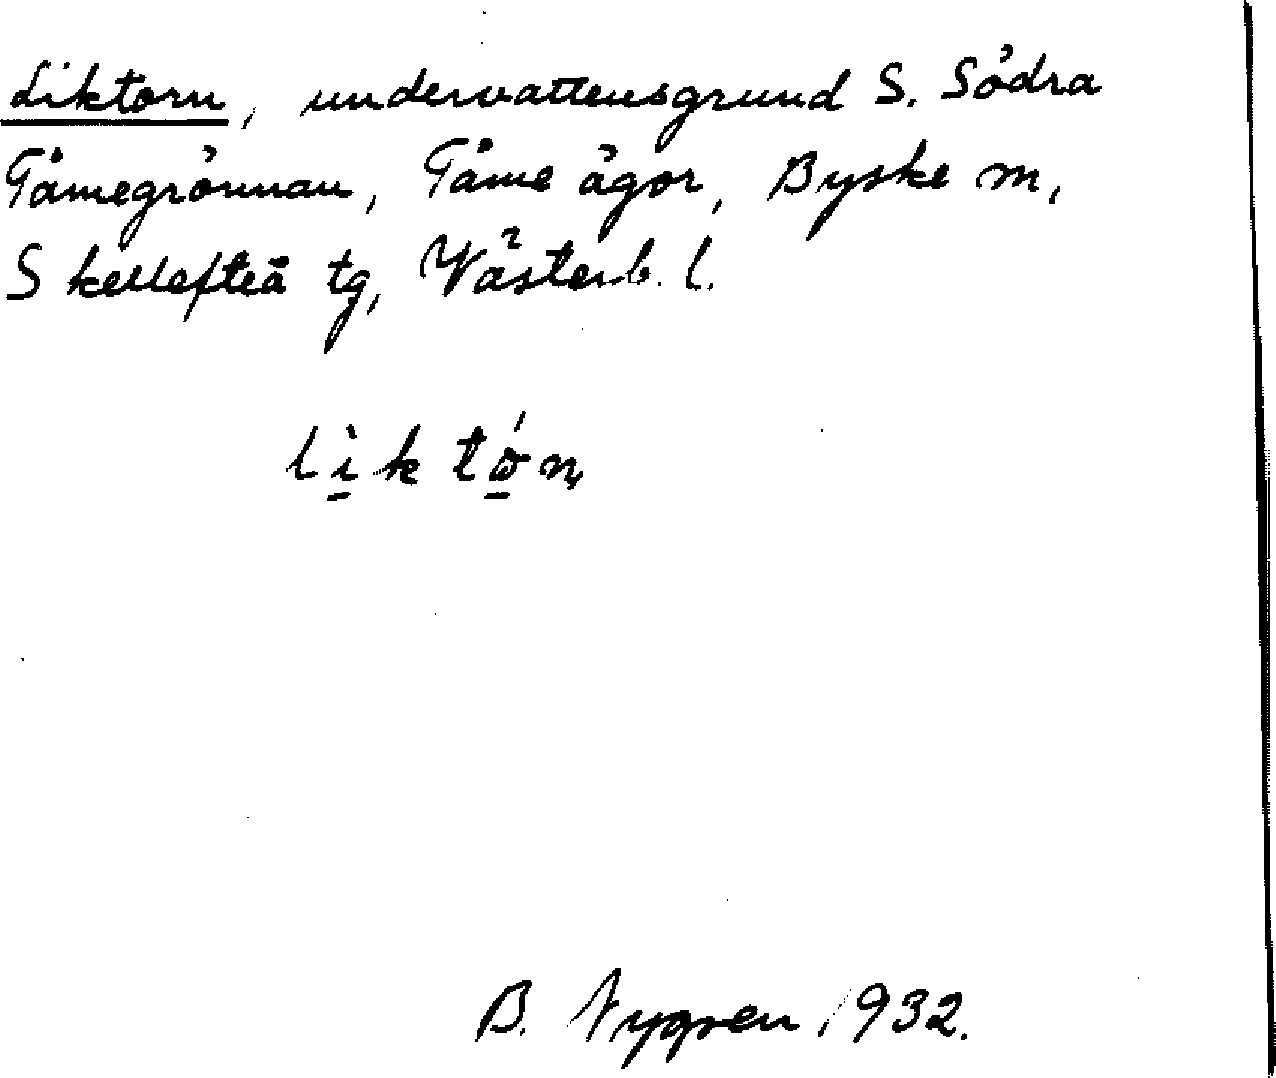 Liktorn, undervattensgrund S. Södra
Tåmegrönnan, Tåme ägor, Byske m,
Skellefteå tg, Västerb. l.
lìktón
B. Nygren 1932.